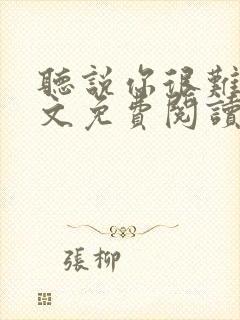 聽說你很難
文免費閱讀
張柳